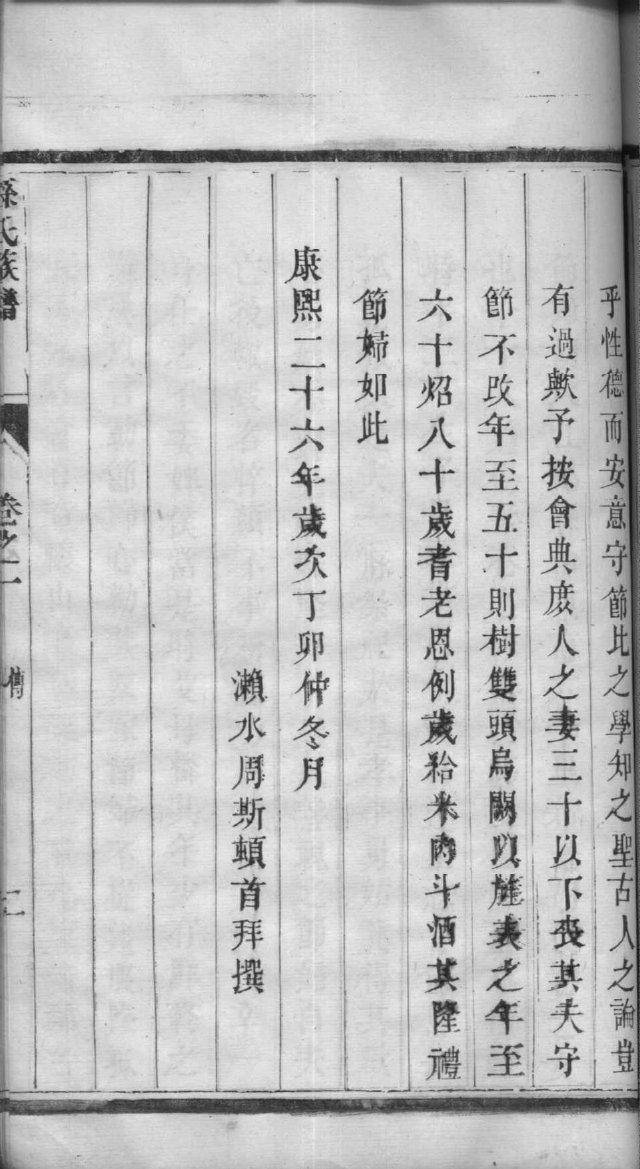 乎性德而安意守節比之學知之聖古人之論豈
有過歟予按會典庶人之妻三十以下喪其夫守
節不改年至五十則樹雙頭烏闕以旌表之年至
六十炤八十歲耆老恩例歲給米肉斗酒其隆禮
節婦如此
康熙二十六年歲次丁卯仲冬月
瀨水周斯頓首拜撰
孫氏族譜
卷之一
傳